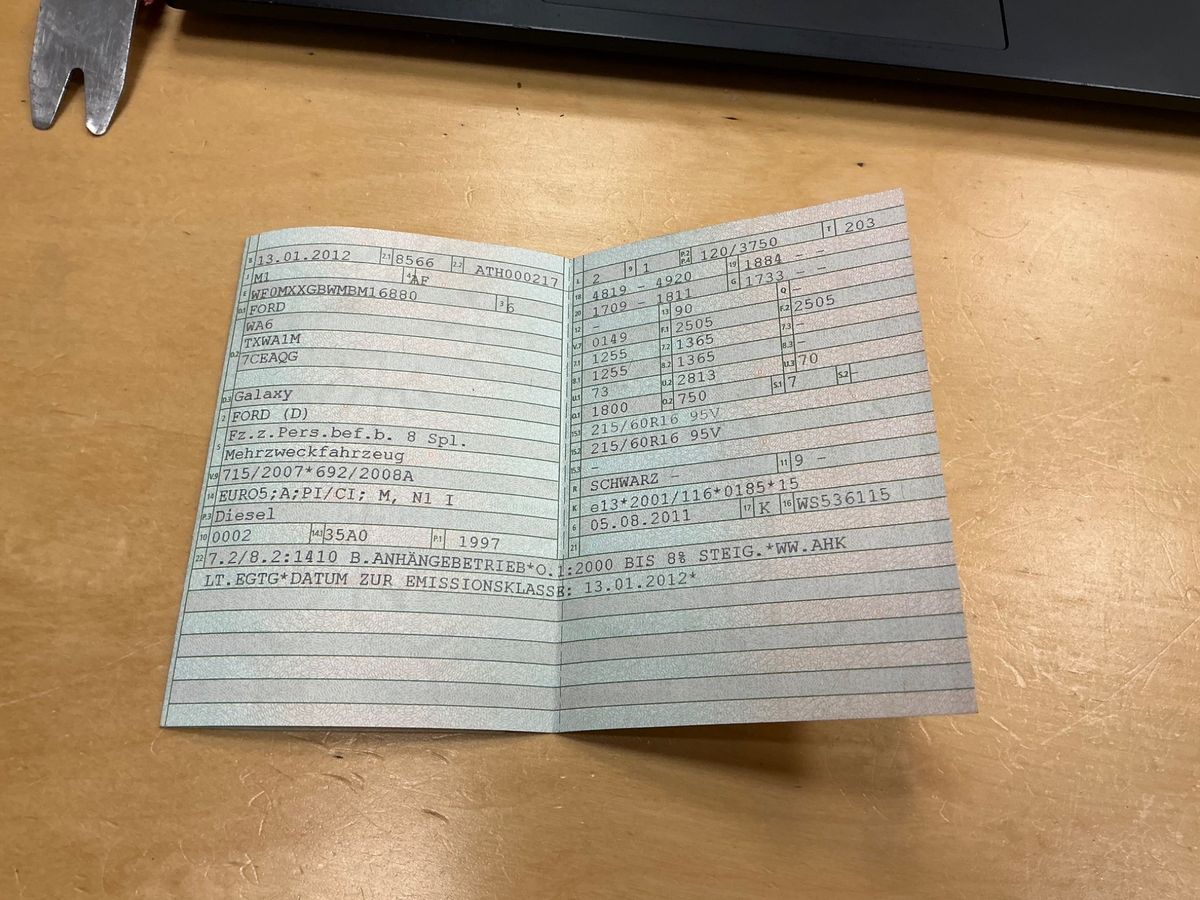 B 13.01.2012 2.1 8566 2.2 ATH000217
J M1 4 AF
E WF0MXXGBWMBM16880 3 6
D.1 FORD
WA6
D.2 TXWA1M
7CEAQG
D.3 Galaxy
2 FORD (D)
5 Fz.z.Pers.bef.b. 8 Spl.
Mehrzweckfahrzeug
V.9 715/2007*692/2008A
14 EURO5;A;PI/CI; M, N1 I
P.3 Diesel
10 0002 14.1 35A0 P.1 1997
L 2 9 1 P.2 P.4 120/3750 T 203
18 4819 - 4920 19 1884 - -
20 1709 - 1811 G 1733 - -
12 - 13 90 Q -
V.7 0149 F.1 2505 F.2 2505
7.1 1255 7.2 1365 7.3 -
8.1 1255 8.2 1365 8.3 -
U.1 73 U.2 2813 U.3 70
O.1 1800 O.2 750 S.1 7 S.2 -
15.1 215/60R16 95V
15.2 215/60R16 95V
15.3 -
R SCHWARZ - 11 9 -
K e13*2001/116*0185*15
6 05.08.2011 17 K 16 WS536115
21
22 7.2/8.2:1410 B.ANHÄNGEBETRIEB*O.1:2000 BIS 8% STEIG.*WW.AHK
LT.EGTG*DATUM ZUR EMISSIONSKLASSE: 13.01.2012*